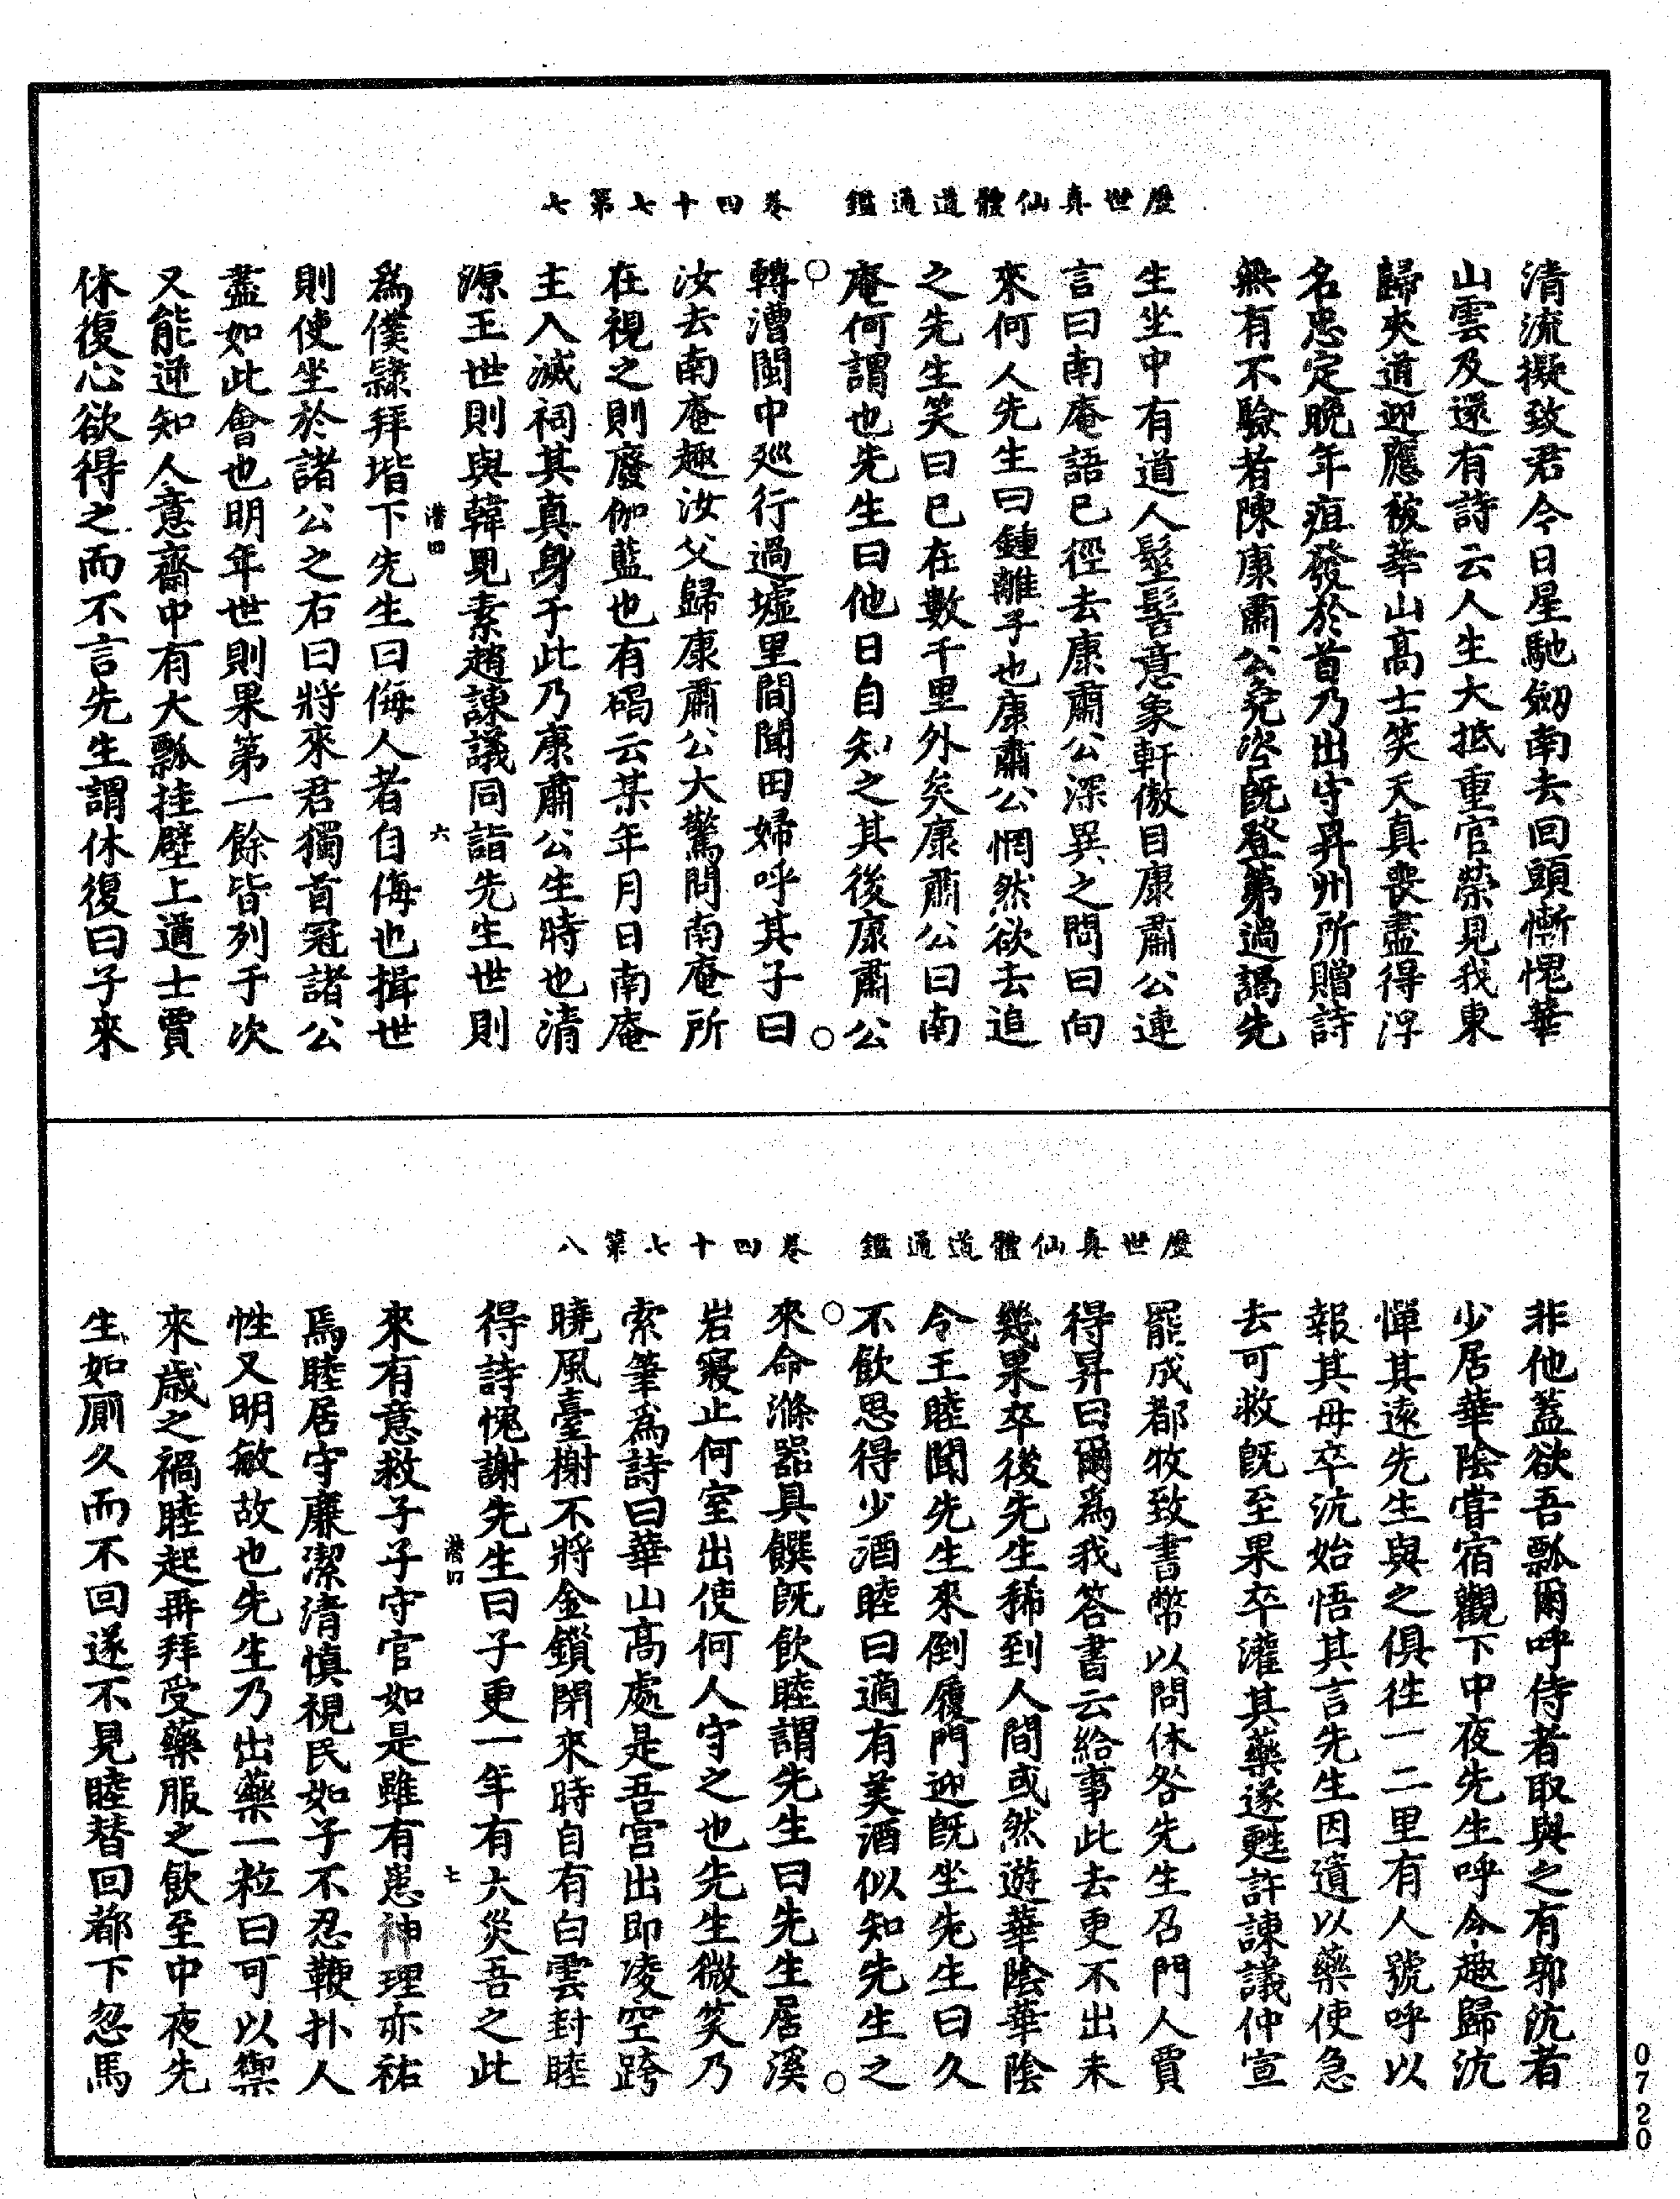 歷世真仙體道通鑑　卷四十七第七
清流擬致君今日星馳劒南去回頭慚愧華
山雲及還有詩云人生大抵重官榮見我東
歸夾道迎應被華山高士笑天真喪盡得浮
名忠定晚年疽發於首乃出守昇州所贈詩
無有不驗者陳康肅公堯咨既登第過謁先
生坐中有道人髽髻意象軒傲目康肅公連
言曰南庵語已徑去康肅公深異之問曰向
來何人先生曰鍾離子也康肅公惘然欲去追
之先生笑曰已在數千里外矣康肅公曰南
庵何謂也先生曰他日自知之其後康肅公
轉漕閩中廵行過墟里間聞田婦呼其子曰
汝去南庵趣汝父歸康肅公大驚問南庵所
在視之則廢伽藍也有碣云某年月日南庵
主入滅祠其真身于此乃康肅公生時也清
源王世則與韓見素趙諫議同詣先生世則
潛四　六
為僕隸拜堦下先生曰侮人者自侮也揖世
則使坐於諸公之右曰將來君獨首冠諸公
盡如此會也明年世則果第一餘皆列于次
又能逆知人意齋中有大瓢挂壁上道士賈
休復心欲得之而不言先生謂休復曰子來
歷世真仙體道通鑑　卷四十七第八
非他蓋欲吾瓢爾呼侍者取與之有郭沆者
少居華陰嘗宿觀下中夜先生呼令趣歸沆
憚其遠先生與之俱徃一二里有人號呼以
報其母卒沆始悟其言先生因遺以藥使急
去可救既至果卒灌其藥遂甦許諫議仲宣
罷成都牧致書幣以問休咎先生召門人賈
得昇曰爾為我答書云給事此去更不出未
幾果卒後先生稀到人間或然遊華陰華陰
令王睦聞先生來倒履門迎既坐先生曰久
不飲思得少酒睦曰適有美酒似知先生之
來命滌器具饌既飲睦謂先生曰先生居溪
岩寢止何室出使何人守之也先生微笑乃
索筆為詩曰華山高處是吾宮出即凌空跨
曉風臺榭不將金鎖閉來時自有白雲封睦
得詩愧謝先生曰子更一年有大災吾之此
潛四　七
來有意救子子守官如是雖有患神理亦祐
焉睦居守廉潔清慎視民如子不忍鞭扑人
性又明敏故也先生乃出藥一粒曰可以禦
來歲之禍睦起再拜受藥服之飲至中夜先
生如厠久而不回遂不見睦替回都下忽馬
0720